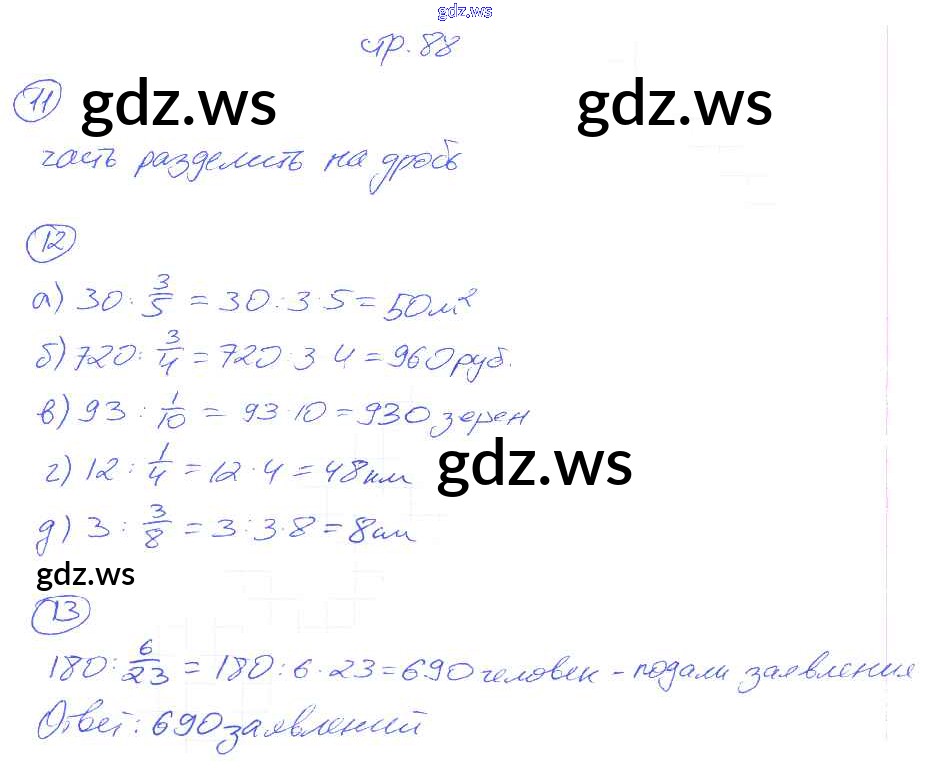 gdz.ws
стр. 88
11 gdz.ws gdz.ws
часть разделить на дробь
12
а) 30 : 3/5 = 30 : 3 · 5 = 50 м²
б) 720 : 3/4 = 720 : 3 4 = 960 руб.
в) 93 : 1/10 = 93 · 10 = 930 зерен
г) 12 : 1/4 = 12 · 4 = 48 км
gdz.ws
д) 3 : 3/8 = 3 : 3 · 8 = 8 см
gdz.ws
13
180 : 6/23 = 180 : 6 · 23 = 690 человек - подали заявления
Ответ: 690 заявлений